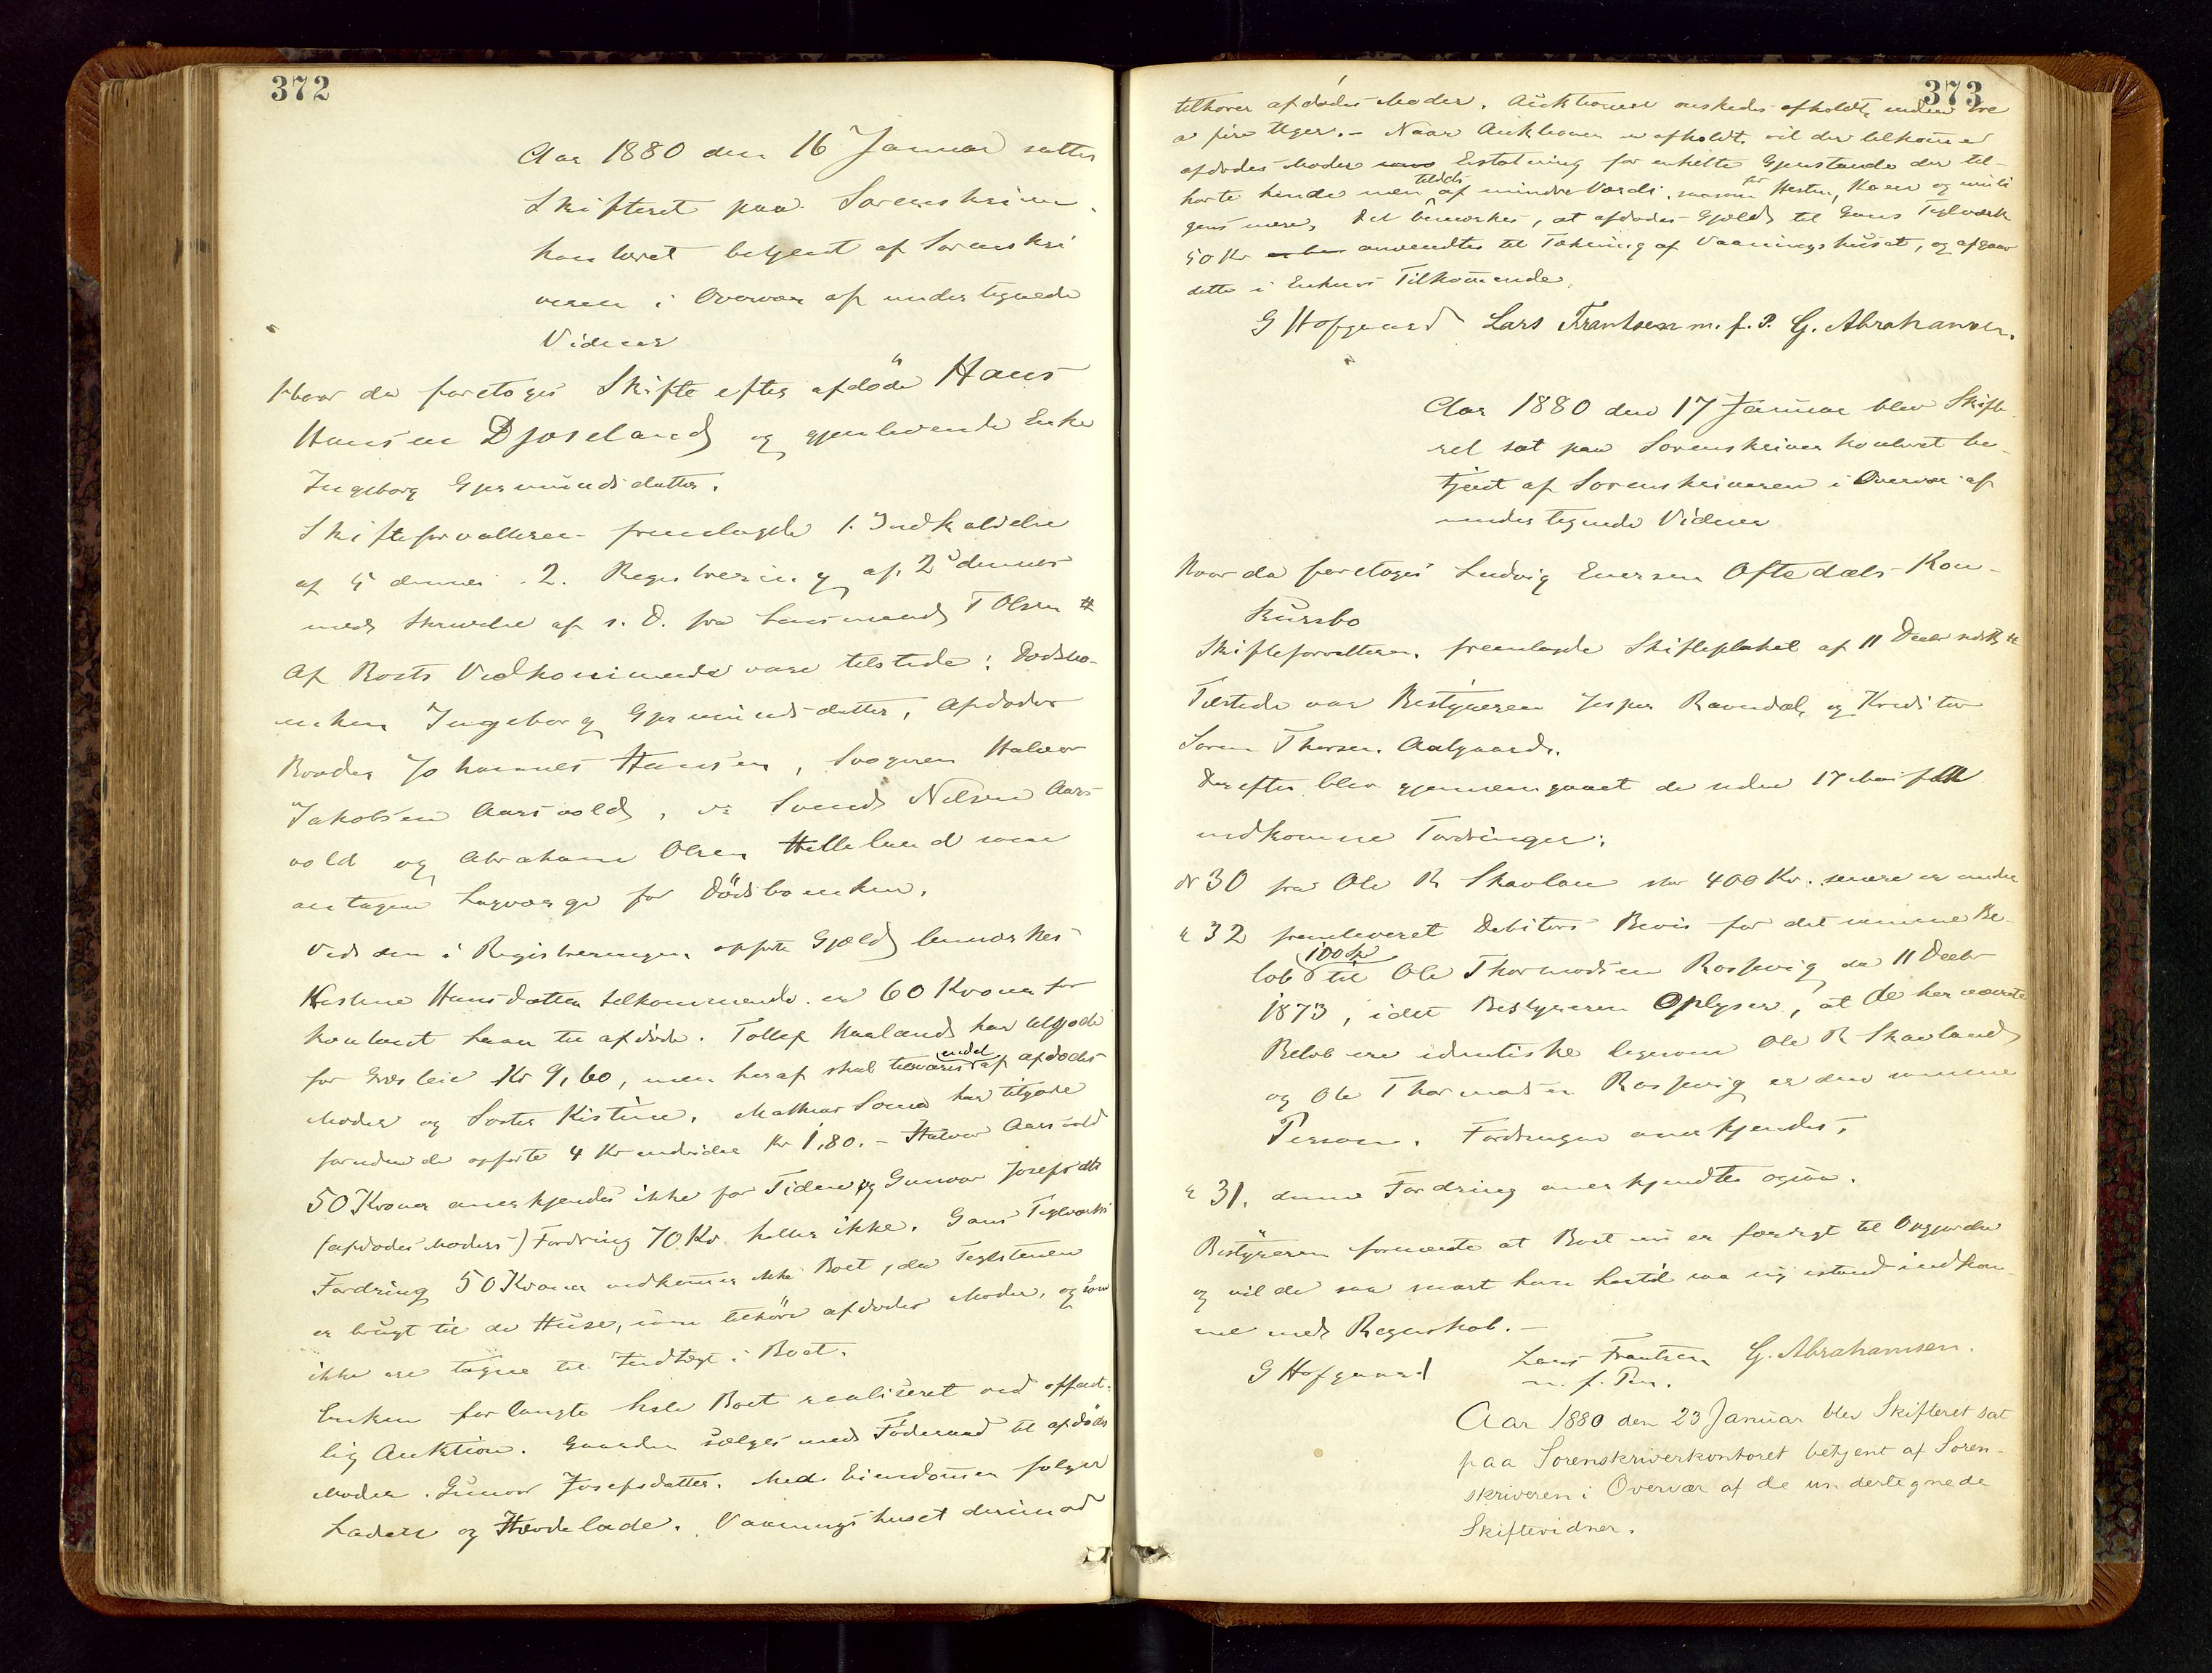 372
Aar 1880 den 16 Januar sattes
Skifteret paa Sorenskriver
kontoret betjent af Sorenskri
veren i Overvær af undertegnede
Vidner
Hvor da foretoges Skifte efter afdøde Hans
Hansen Djoseland og gjenlevende Enke
Ingeborg Gjermundsdatter.
Skifteforvalteren fremlagde 1. Indkaldelse
af 5 dennes 2. Registrering af 2 dennes
med Skrivelse af s. D. fra Lensmand T Olsen #
Af Boets Vedkommende vare tilstede: Dødsbo-
enken Ingeborg Gjermundsdatter, Afdødes
Broder Johannes Hansen, Svogeren Halvor
Jakobsen Aarsvold, Svend Nilsen Aars
vold og Abraham Olsen Helleland som
antagen Laugværge for Dødsboenken.
Ved den i Registreringen opførte Gjæld bemærkes
Kistine Hansdatter tilkommende er 60 Kroner for
kontant laan til afdøde. Tollef Haaland har tilgode
for Græsleie Kr 9,60, men heraf skal tilsvares endel af afdødes
Moder og Søster Kistine. Mathias Soma har tilgode
foruden de opførte 4 Kr endvidere Kr 1,80. – Halvor Aarsvold
50 Kroner anerkjendes ikke for Tiden og Gunvor Josefsdtr
(afdødes Moders) Fordring 70 Kr. heller ikke. Gans Teglværks
Fordring 50 Kroner vedkommer ikke Boet, da Teglstenen
er brugt til de Huse, som tilhøre afdødes Moder, og som
ikke ere tagne til Indtægt i Boet.
Enken forlangte hele Boet realiseret ved offent-
lig Auktion. Gaarden sælges med Føderaad til afdødes
Moder Gunvor Josefsdatter. Med Eiendommen følger
Laden og Hovdelade. Vaaningshuset derimod
373
tilhører afdødes Moder. Auktionen ønskedes afholdt inden tre
a fire Uger. – Naar Auktionen er afholdt, vil der tilkomme
afdødes Moder Erstatning for enkelte Gjenstande der til-
hørte hende men tildels af mindre Værdi, saasom for Hesten, Køer og muli
gens mere. Det bemærkes, at afdødes Gjæld til Gans Teglværk
50 Kr anvendtes til Tækning af Vaaningshuset, og afgaar
dette i Enkens Tilkommende.
G Hofgaard Lars Frantsen m. f. P. G. Abrahamsen.
Aar 1880 den 17 Januar blev Skifte
ret sat paa Sorenskriverkontoret be
tjent af Sorenskriveren i Overvær af
undertegnede Vidner
Hvor da foretoges Ludvig Eversen Oftedals Kon-
kursbo
Skifteforvalteren fremlagde Skifteplakat af 11 Decbr #
Tilstede var Bestyreren Jesper Ravndal og Kreditor
Søren Thorsen Aalgaard.
Derefter blev gjennemgaaet de siden 17 Mai f A
indkomne Fordringer:
N 30 fra Ole R Skavlan stor 400 Kr. senere er under
" 32 fremleveret Debitors Bevis for det samme Be-
løb 100 Sp til Ole Thormodsen Rossevig da 11 Decbr
1873, idet Bestyreren oplyser, at de her nævnte
Beløb ere identiske ligesom Ole R Skavland
og Ole Thormodsen Rossevig er den samme
Person. Fordringen anerkjendes.
" 31. denne Fordring anerkjendtes ogsaa.
Bestyreren formente at Boet nu er færdigt til Opgjørelse
og vilde saa snart han hertil saa sig istand indkom
me med Regnskab. –
G Hofgaard Lars Frantsen G. Abrahamsen.
m. f. Pen.
Aar 1880 den 23 Januar blev Skifteret sat
paa Sorenskriverkontoret betjent af Soren-
skriveren i Overvær af de undertegnede
Skiftevidner.